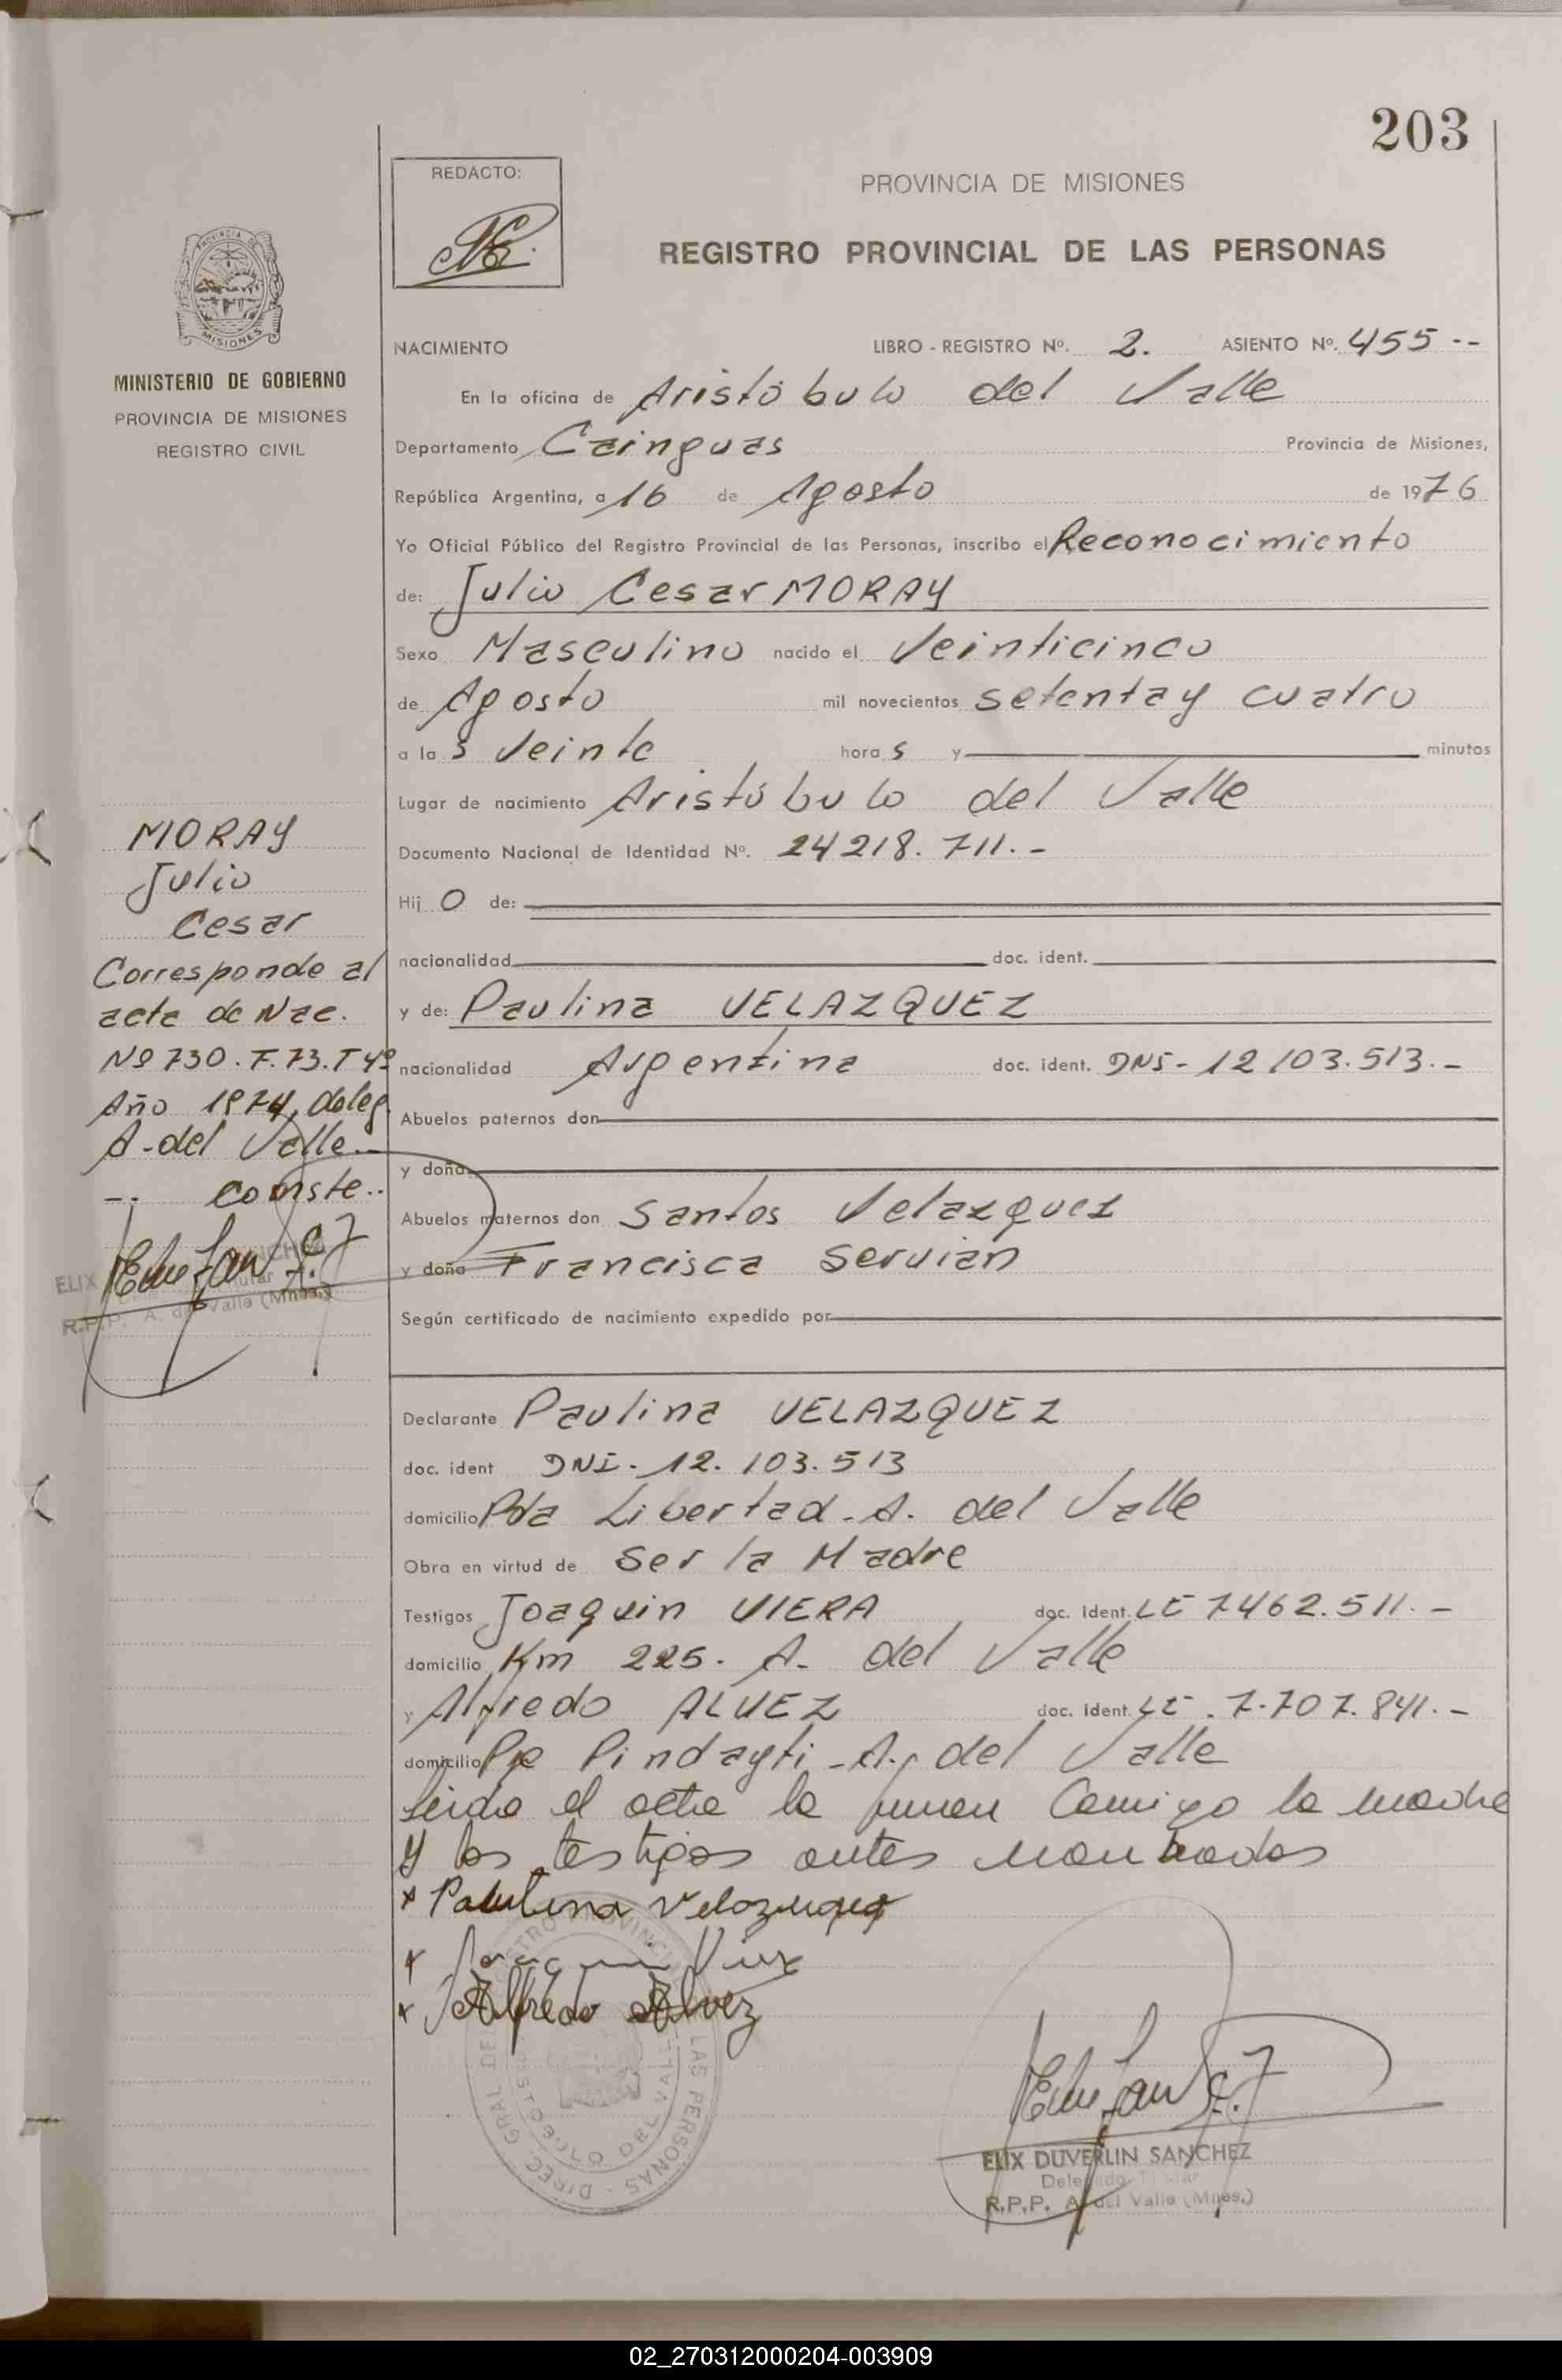 203
REDACTO:
PROVINCIA DE MISIONES
REGISTRO PROVINCIAL DE LAS PERSONAS
MINISTERIO DE GOBIERNO
PROVINCIA DE MISIONES
REGISTRO CIVIL
NACIMIENTO LIBRO - REGISTRO Nº. 2. ASIENTO Nº. 455 --
En la oficina de Aristóbulo del Valle
Departamento Cainguas Provincia de Misiones,
República Argentina, a 16 de Agosto de 1976
Yo Oficial Público del Registro Provincial de las Personas, inscribo el Reconocimiento
de: Julio Cesar MORAY
Sexo Masculino nacido el Veinticinco
de Agosto mil novecientos setenta y cuatro
a las Veinte horas y minutos
Lugar de nacimiento Aristóbulo del Valle
Documento Nacional de Identidad Nº. 24218.711.-
Hijo de:
nacionalidad doc. ident.
y de: Paulina VELAZQUEZ
nacionalidad Argentina doc. ident. DNI- 12103.513.-
Abuelos paternos don
y doña
Abuelos maternos don Santos Velazquez
y doña Francisca Servian
Según certificado de nacimiento expedido por
MORAY
Julio
Cesar
Corresponde al
acta de Nac.
Nº 730. F.73. T 4º
Año 1974, deleg.
A. del Valle.-
-. Conste..
Declarante Paulina VELAZQUEZ
doc. ident DNI. 12.103.513
domicilio Pda Libertad. A. del Valle
Obra en virtud de Ser la Madre
Testigos Joaquin VIERA doc. Ident. LE 7462.511.-
domicilio Km 225. A. del Valle
y Alfredo ALVEZ doc. Ident. LE. 7.707.841.-
domicilio Pje Pindayti - A. del Valle
Leida el acta la firman Conmigo la madre
y los testigos antes nombrados
x Paulina Velazquez
x Joaquin Viera
x Alfredo Alvez
ELIX DUVERLIN SANCHEZ
Delegado Titular
R.P.P. A. del Valle (Mnes.)
02_270312000204-003909